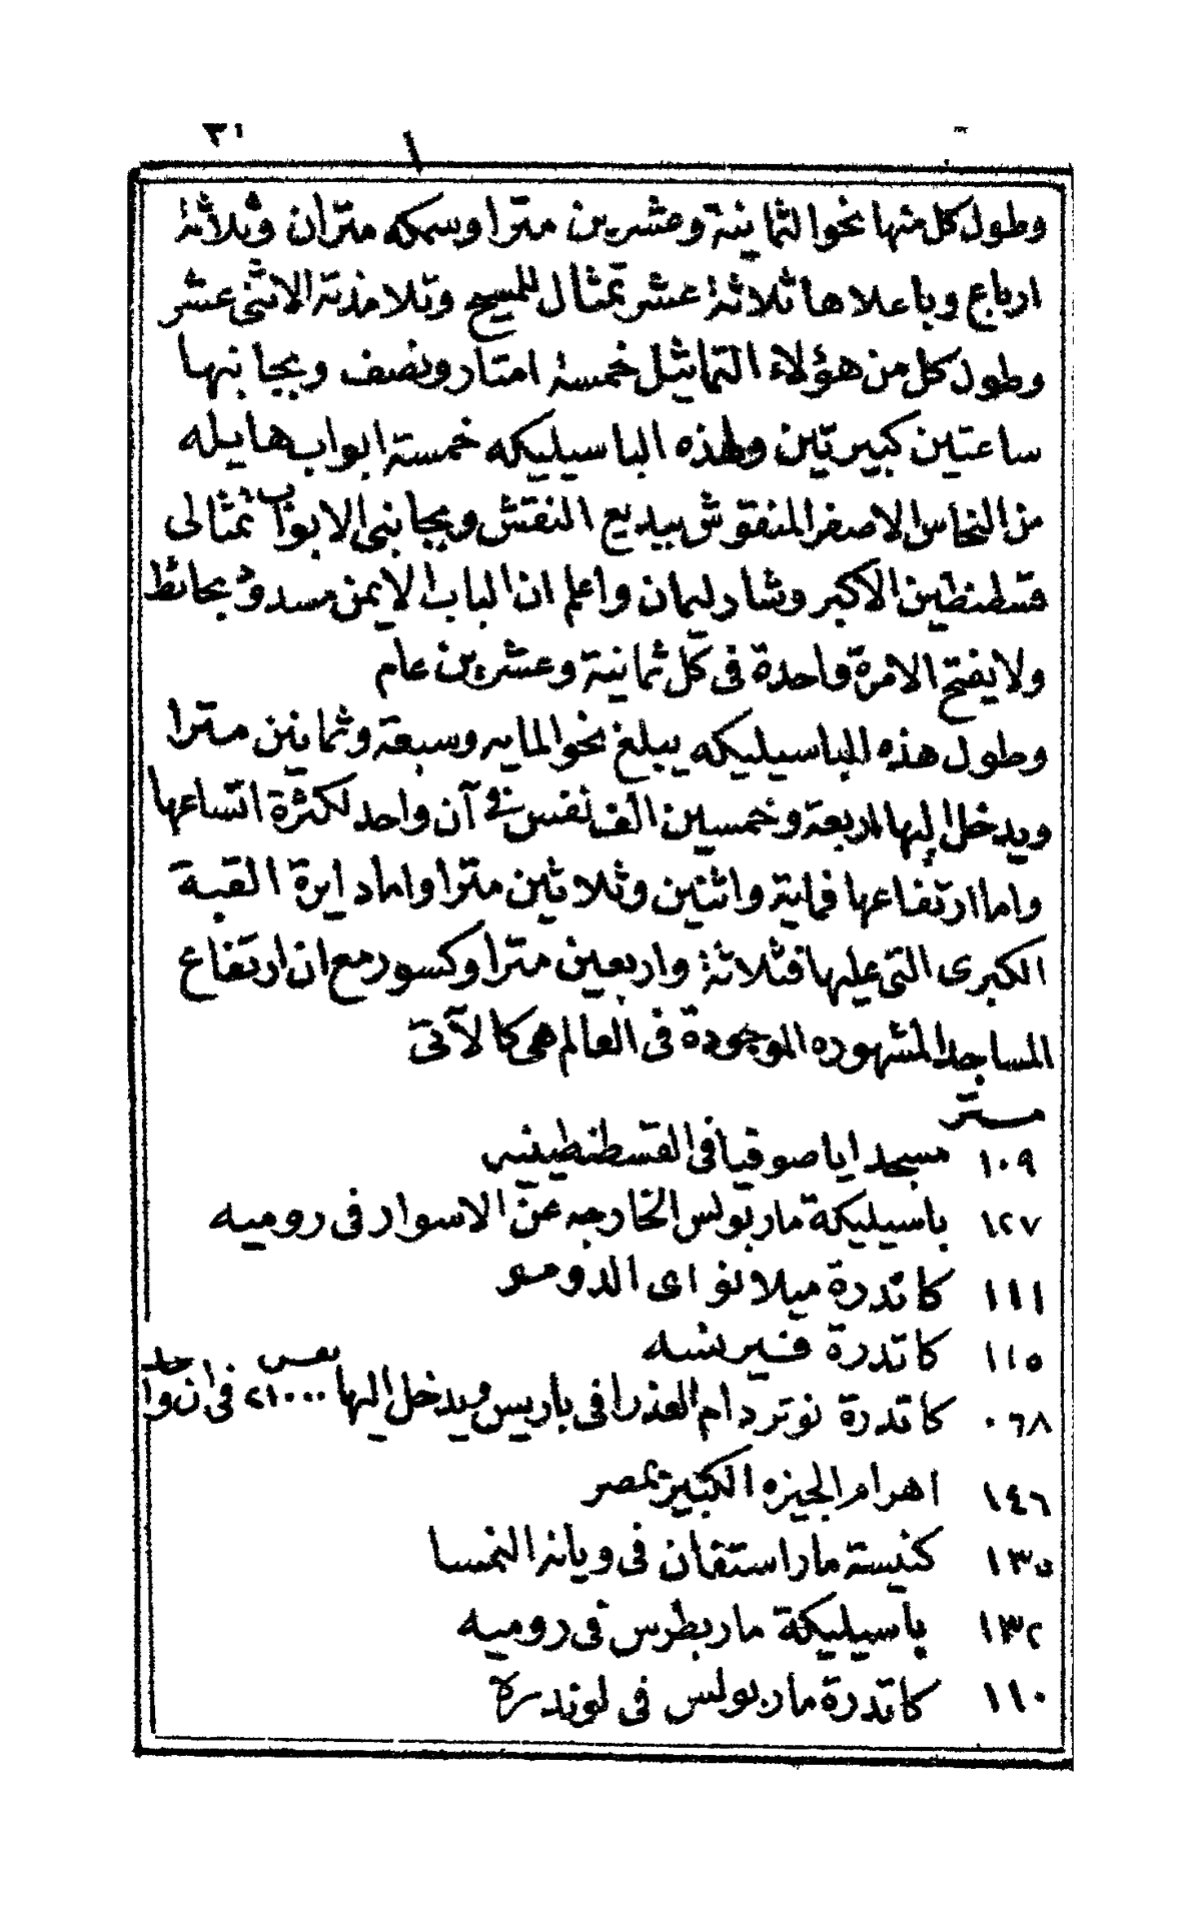 ٣١
وطول كل منها نحو الثمانية وعشرين مترا وسمكه متران وثلاثة
ارباع وباعلاها ثلاثة عشر تمثال للمسيح وتلامذته الاثنى عشر
وطول كل من هؤلاء التماثيل خمسة امتار ونصف وبجانبها
ساعتين كبيرتين ولهذه الباسيليكه خمسة ابواب هايله
من النحاس الاصفر المنقوش ببديع النقش وبجانبى الابواب تمثالى
قسطنطين الاكبر وشارليمان واعلم ان الباب الايمن مسدود بحائط
ولا يفتح الا مرة واحدة فى كل ثمانية وعشرين عام
وطول هذه الباسيليكه يبلغ نحو المايه وسبعة وثمانين مترا
ويدخل اليها اربعة وخمسين الف نفس فى آن واحد لكثرة اتساعها
واما ارتفاعها فماية واثنين وثلاثين مترا واما دايرة القبة
الكبرى التى عليها فثلاثة واربعين مترا وكسور مع ان ارتفاع
المساجد المشهوره الموجودة فى العالم هى كالآتى
متر
١٠٩ مسجد اياصوفيا فى القسطنطينيه
١٢٧ باسيليكة ماربولس الخارجه عن الاسوار فى روميه
١١١ كاتدرة ميلانو اى الدومو
١١٥ كاتدرة فيرنسه
٠٦٨ كاتدرة نوتردام العذرا فى باريس ويدخل اليها ٢١٠٠٠ نفس فى ان واحد
١٤٦ اهرام الجيزه الكبير بمصر
١٣٥ كنيسة مار استفان فى ويانه النمسا
١٣٢ باسيليكة ماربطرس فى روميه
١١٠ كاتدرة ماربولس فى لوندرة